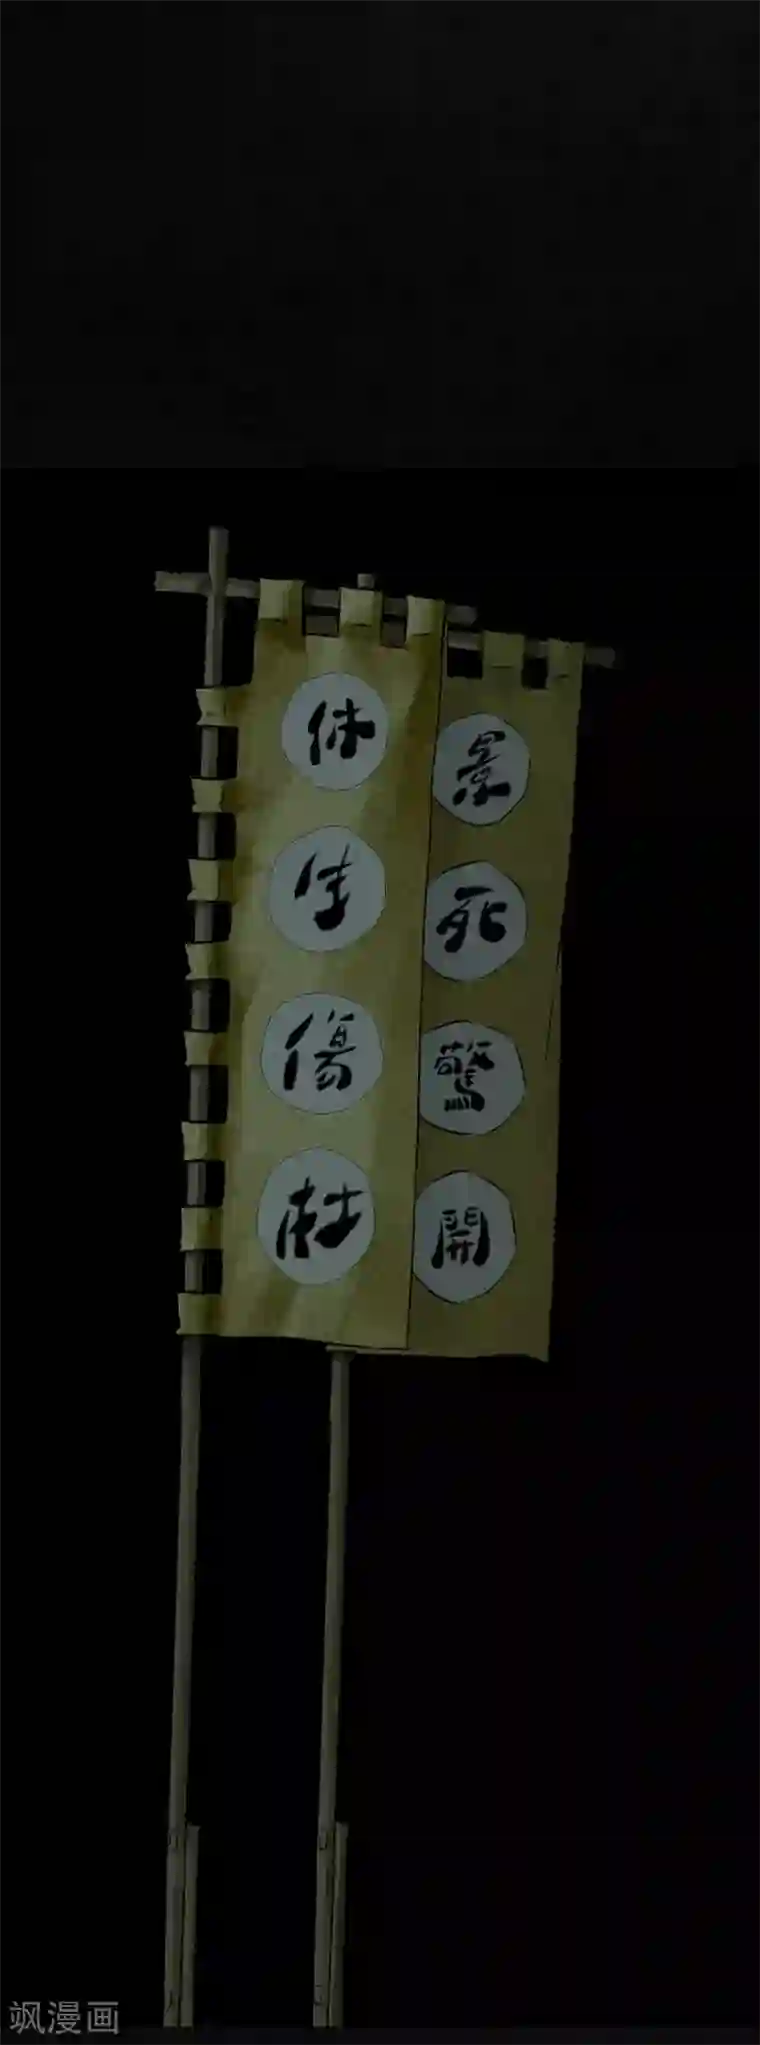 休
生
傷
杜
景
死
驚
開
飒漫画